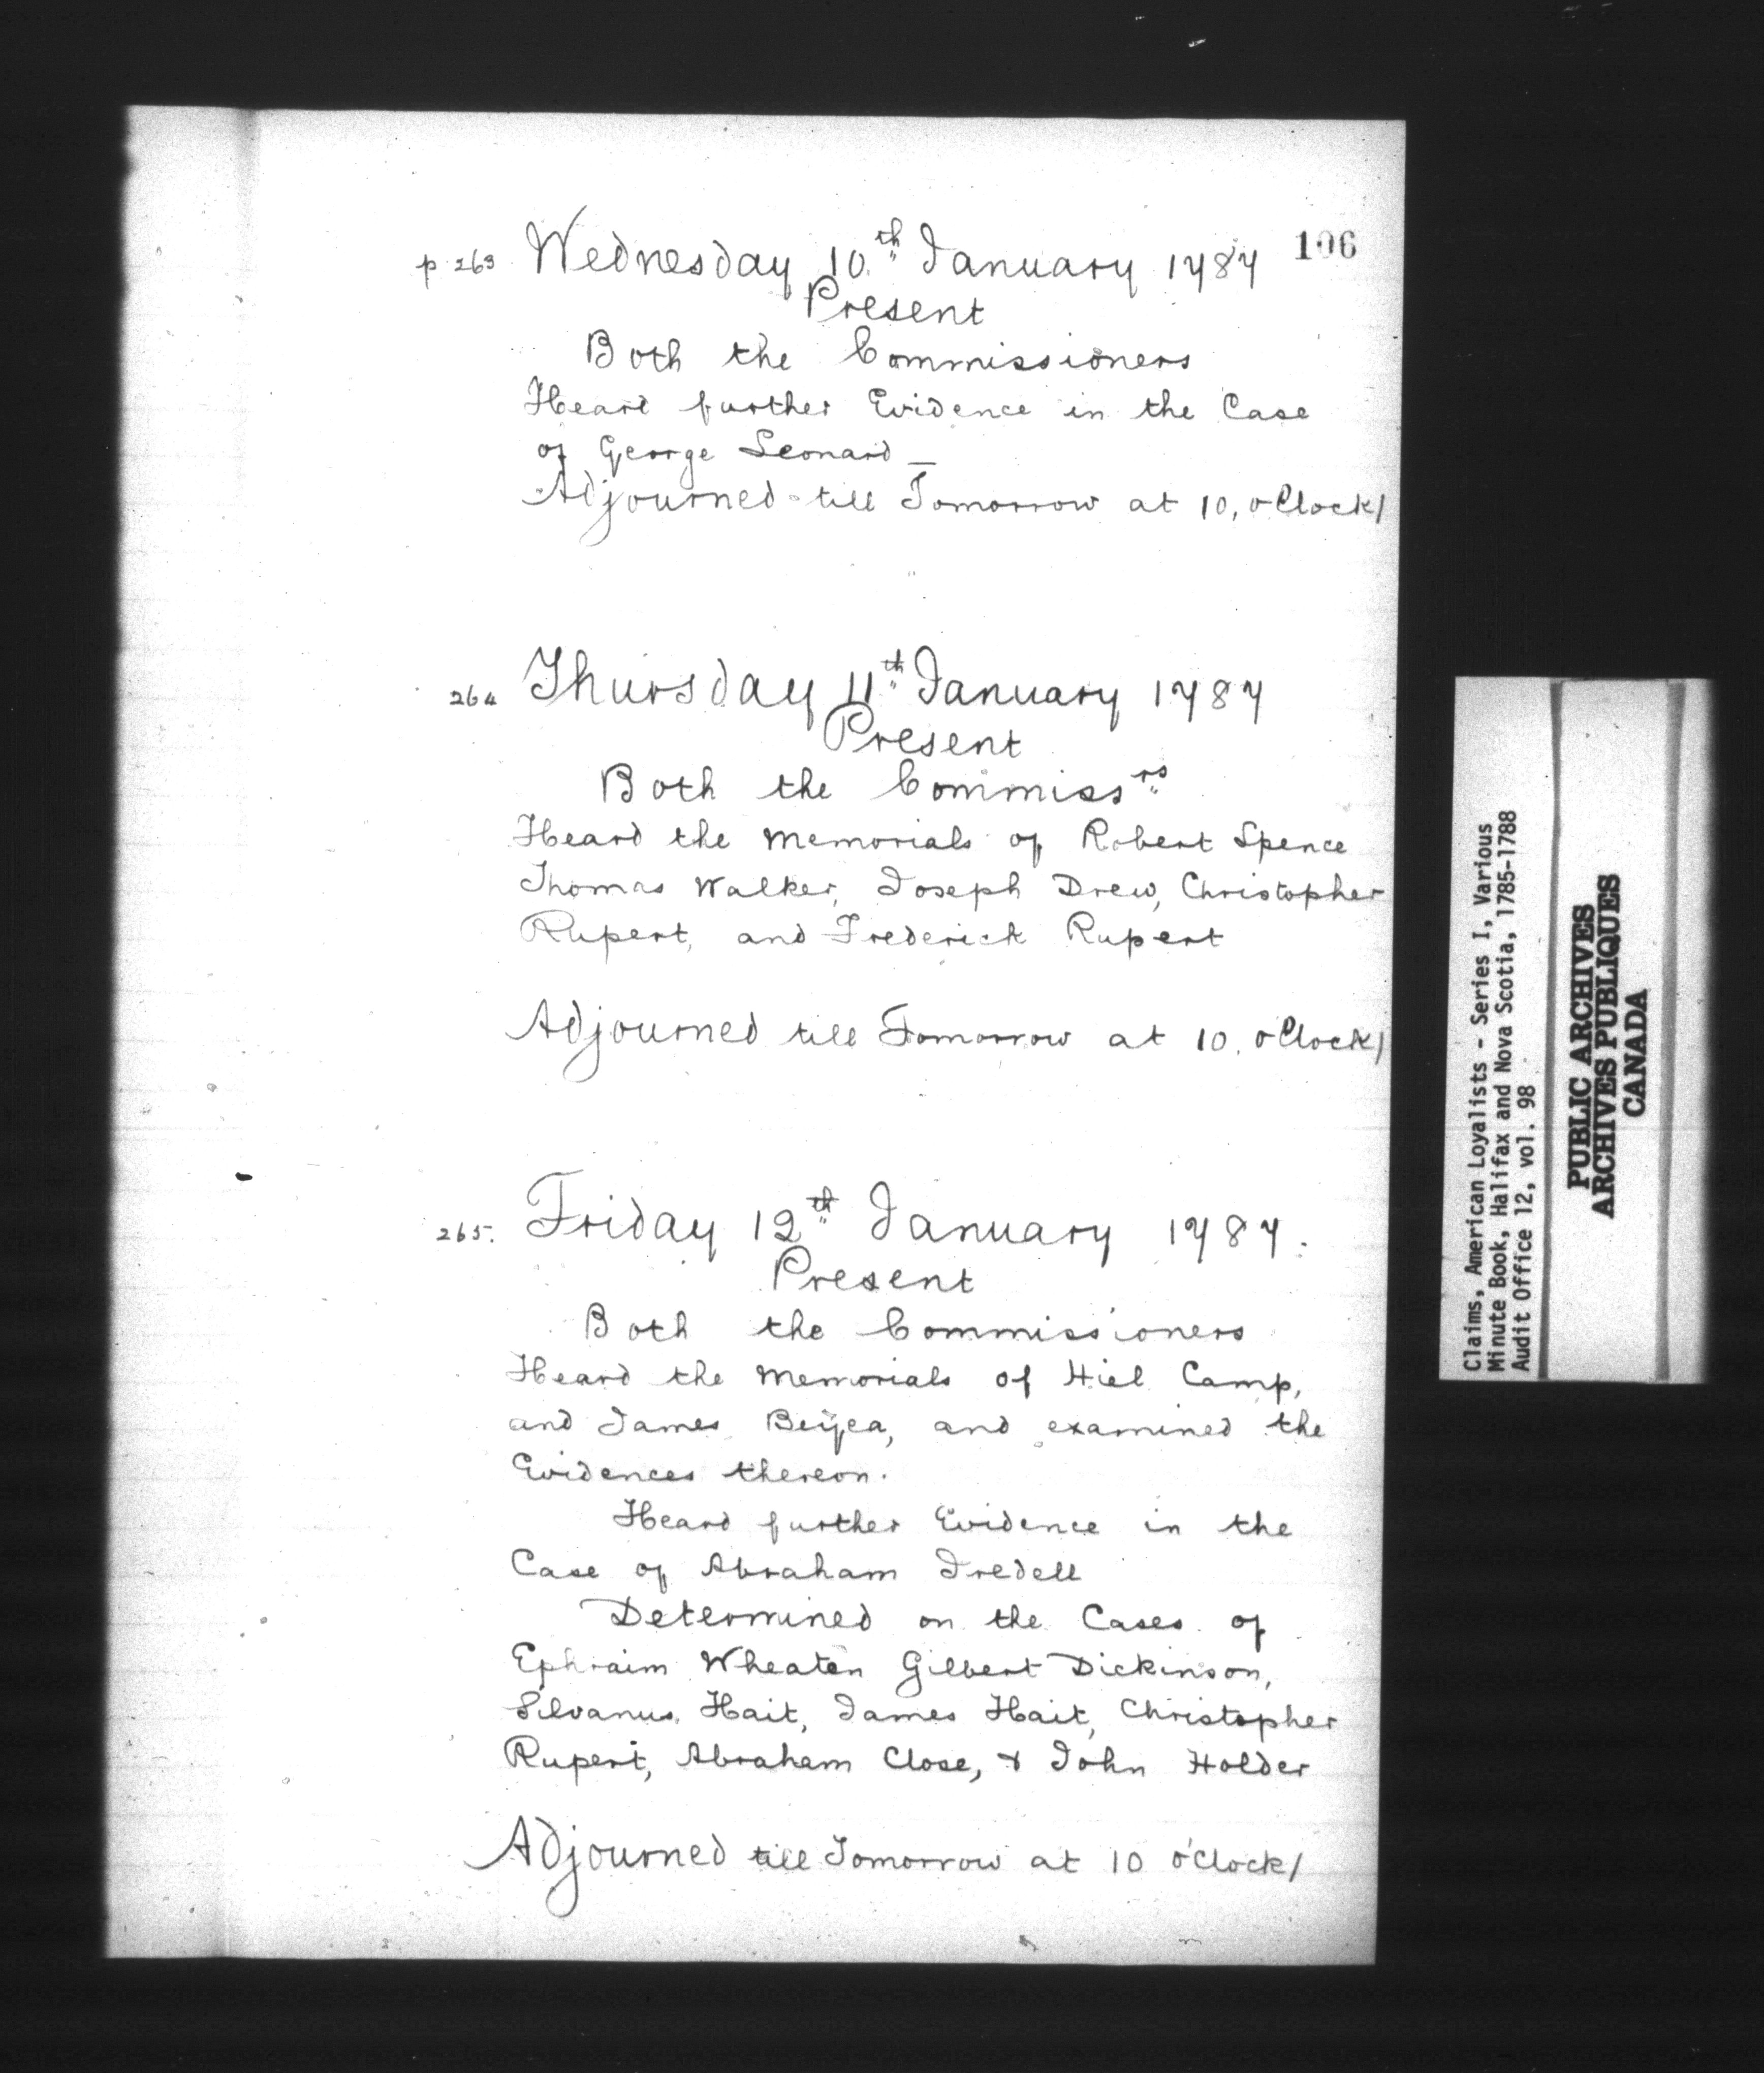 106
p 263 Wednesday 10th January 1787
Present
Both the Commissioners
Heard further Evidence in the Case
of George Leonard —
Adjourned till Tomorrow at 10, oClock/
264 Thursday 11th January 1787
Present
Both the Commissrs
Heard the Memorials of Robert Spence
Thomas Walker, Joseph Drew, Christopher
Rupert, and Frederick Rupert
Adjourned till Tomorrow at 10, oClock/
265. Friday 12th January 1787.
Present
Both the Commissioners
Heard the Memorials of Hiel Camp,
and James Beyea, and examined the
Evidences thereon.
Heard further Evidence in the
Case of Abraham Iredell
Determined on the Cases of
Ephraim Wheaten Gilbert Dickinson,
Silvanus Hait, James Hait, Christopher
Rupert, Abraham Close, & John Holder
Adjourned till Tomorrow at 10 o'Clock/
Claims, American Loyalists - Series I, Various
Minute Book, Halifax and Nova Scotia, 1785-1788
Audit Office 12, vol. 98
PUBLIC ARCHIVES
ARCHIVES PUBLIQUES
CANADA